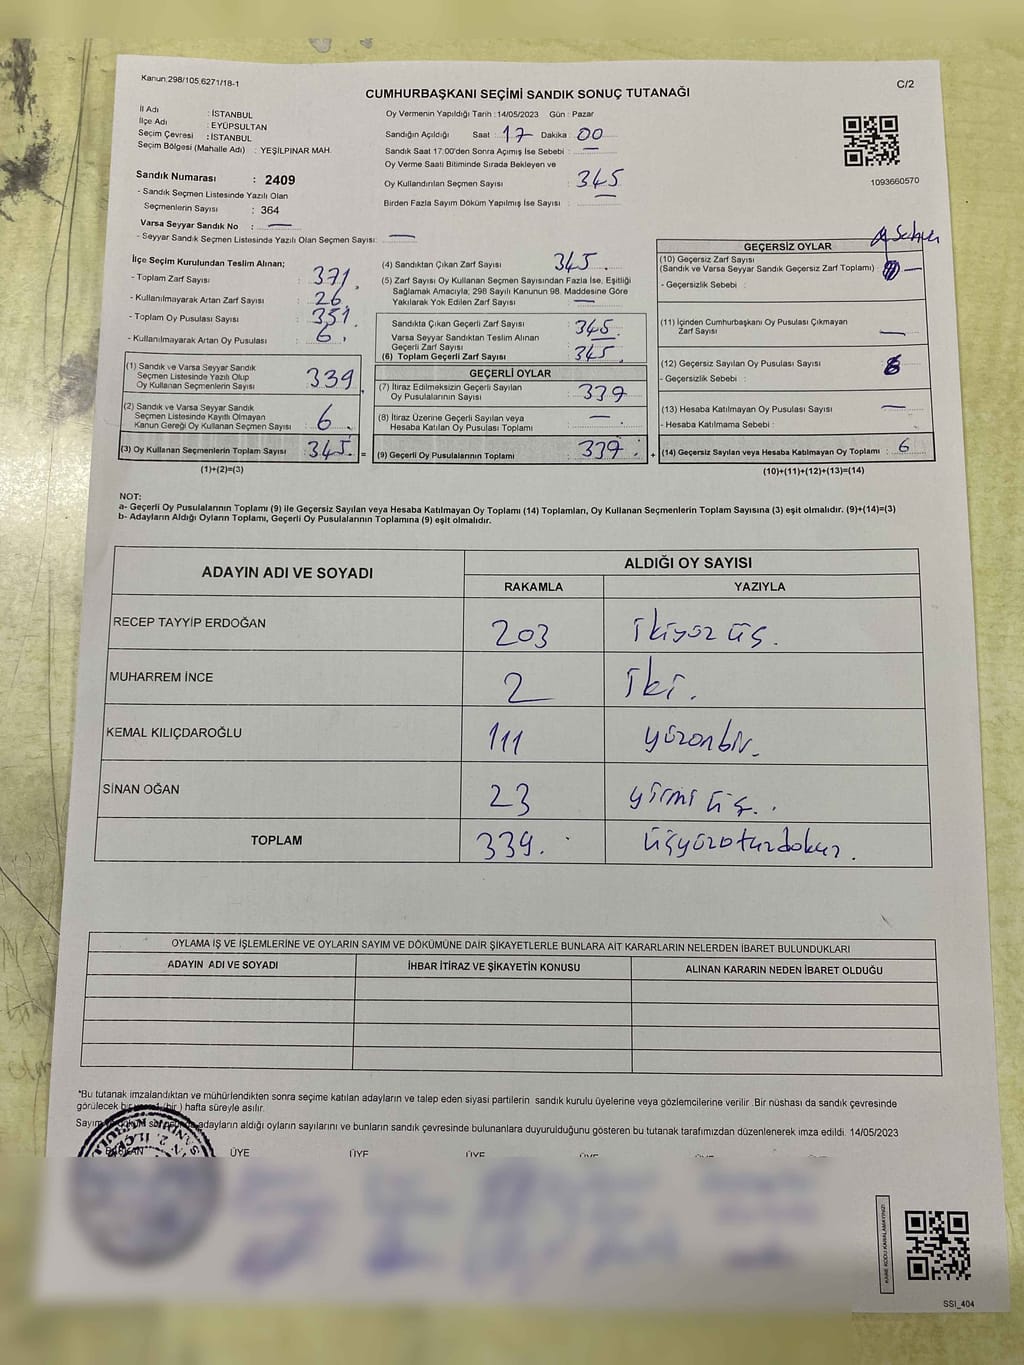 Kanun:298/105,6271/18-1
CUMHURBAŞKANI SEÇİMİ SANDIK SONUÇ TUTANAĞI
C/2
İl Adı : İSTANBUL
İlçe Adı : EYÜPSULTAN
Seçim Çevresi : İSTANBUL
Seçim Bölgesi (Mahalle Adı) : YEŞİLPINAR MAH.
Sandık Numarası : 2409
- Sandık Seçmen Listesinde Yazılı Olan
Seçmenlerin Sayısı : 364
Varsa Seyyar Sandık No : —
- Seyyar Sandık Seçmen Listesinde Yazılı Olan Seçmen Sayısı: —
Oy Vermenin Yapıldığı Tarih :14/05/2023 Gün : Pazar
Sandığın Açıldığı Saat : 17 Dakika : 00
Sandık Saat 17:00'den Sonra Açımış İse Sebebi : —
Oy Verme Saati Bitiminde Sırada Bekleyen ve
Oy Kullandırılan Seçmen Sayısı : 345
Birden Fazla Sayım Döküm Yapılmış İse Sayısı : —
1093660570
İlçe Seçim Kurulundan Teslim Alınan;
- Toplam Zarf Sayısı : 371.
- Kullanılmayarak Artan Zarf Sayısı : 26.
- Toplam Oy Pusulası Sayısı : 351.
- Kullanılmayarak Artan Oy Pusulası : 6.
(1) Sandık ve Varsa Seyyar Sandık
Seçmen Listesinde Yazılı Olup
Oy Kullanan Seçmenlerin Sayısı : 339
(2) Sandık ve Varsa Seyyar Sandık
Seçmen Listesinde Kayıtlı Olmayan
Kanun Gereği Oy Kullanan Seçmen Sayısı : 6.
(3) Oy Kullanan Seçmenlerin Toplam Sayısı : 345.
(1)+(2)=(3)
(4) Sandıktan Çıkan Zarf Sayısı : 345.
(5) Zarf Sayısı Oy Kullanan Seçmen Sayısından Fazla İse, Eşitliği
Sağlamak Amacıyla; 298 Sayılı Kanunun 98. Maddesine Göre
Yakılarak Yok Edilen Zarf Sayısı : —
Sandıkta Çıkan Geçerli Zarf Sayısı : 345
Varsa Seyyar Sandıktan Teslim Alınan
Geçerli Zarf Sayısı : —
(6) Toplam Geçerli Zarf Sayısı : 345.
GEÇERLİ OYLAR
(7) İtiraz Edilmeksizin Geçerli Sayılan
Oy Pusulalarının Sayısı : 339
(8) İtiraz Üzerine Geçerli Sayılan veya
Hesaba Katılan Oy Pusulası Toplamı : —
= (9) Geçerli Oy Pusulalarının Toplamı : 339.
GEÇERSİZ OYLAR
(10) Geçersiz Zarf Sayısı
(Sandık ve Varsa Seyyar Sandık Geçersiz Zarf Toplamı) : —
- Geçersizlik Sebebi :
(11) İçinden Cumhurbaşkanı Oy Pusulası Çıkmayan
Zarf Sayısı : —
(12) Geçersiz Sayılan Oy Pusulası Sayısı : 6
- Geçersizlik Sebebi :
(13) Hesaba Katılmayan Oy Pusulası Sayısı : —
- Hesaba Katılmama Sebebi :
+ (14) Geçersiz Sayılan veya Hesaba Katılmayan Oy Toplamı : 6
(10)+(11)+(12)+(13)=(14)
NOT:
a- Geçerli Oy Pusulalarının Toplamı (9) ile Geçersiz Sayılan veya Hesaba Katılmayan Oy Toplamı (14) Toplamları, Oy Kullanan Seçmenlerin Toplam Sayısına (3) eşit olmalıdır. (9)+(14)=(3)
b- Adayların Aldığı Oyların Toplamı, Geçerli Oy Pusulalarının Toplamına (9) eşit olmalıdır.
ADAYIN ADI VE SOYADI ALDIĞI OY SAYISI
RAKAMLA YAZIYLA
RECEP TAYYİP ERDOĞAN 203 ikiyüz üç.
MUHARREM İNCE 2 iki.
KEMAL KILIÇDAROĞLU 111 yüzonbir.
SİNAN OĞAN 23 yirmi üç.
TOPLAM 339. üçyüzotuzdokuz.
OYLAMA İŞ VE İŞLEMLERİNE VE OYLARIN SAYIM VE DÖKÜMÜNE DAİR ŞİKAYETLERLE BUNLARA AİT KARARLARIN NELERDEN İBARET BULUNDUKLARI
ADAYIN ADI VE SOYADI İHBAR İTİRAZ VE ŞİKAYETİN KONUSU ALINAN KARARIN NEDEN İBARET OLDUĞU
*Bu tutanak imzalandıktan ve mühürlendikten sonra seçime katılan adayların ve talep eden siyasi partilerin sandık kurulu üyelerine veya gözlemcilerine verilir .Bir nüshası da sandık çevresinde
görülecek bir (bir ) hafta süreyle asılır.
Sayım adayların aldığı oyların sayılarını ve bunların sandık çevresinde bulunanlara duyurulduğunu gösteren bu tutanak tarafımızdan düzenlenerek imza edildi. 14/05/2023
BAŞKAN ÜYE ÜYE ÜYE
KARE KODU KARALAMAYINIZ!
SSI_404